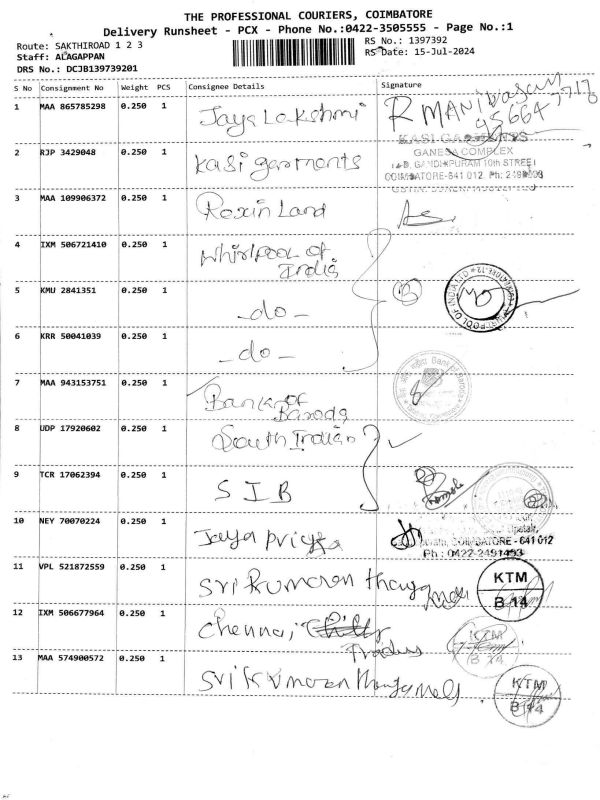 THE PROFESSIONAL COURIERS, COIMBATORE
Delivery Runsheet - PCX - Phone No.:0422-3505555 - Page No.:1
Route: SAKTHIROAD 1 2 3
RS No.: 1397392
Staff: ALAGAPPAN
RS Date: 15-Jul-2024
DRS No.: DCJB139739201
S No Consignment No Weight PCS Consignee Details Signature
1 MAA 865785298 0.250 1 Jaya Lakshmi R MANIVasan
95664
KASI GARMENTS
2 RJP 3429048 0.250 1 Kasi garments GANESA COMPLEX
GANDHIPURAM 10th STREET
COIMBATORE-641 012. Ph:
3 MAA 109906372 0.250 1 Roxin Land
4 IXM 506721410 0.250 1 Whirlpool of
India
5 KMU 2841351 0.250 1 -do-
WHIRLPOOL OF INDIA LTD
6 KRR 50041039 0.250 1 -do-
7 MAA 943153751 0.250 1 Bank of
Baroda
8 UDP 17920602 0.250 1 South Indian
9 TCR 17062394 0.250 1 S I B
10 NEY 70070224 0.250 1 Jaya priya
COIMBATORE - 641 012
Ph : 0422-2491493
11 VPL 521872559 0.250 1 Sri Kumaran thanga
KTM
B 14
12 IXM 506677964 0.250 1 Chennai
Traders
KTM
B 14
13 MAA 574900572 0.250 1 Sri Kumaran
KTM
B 14